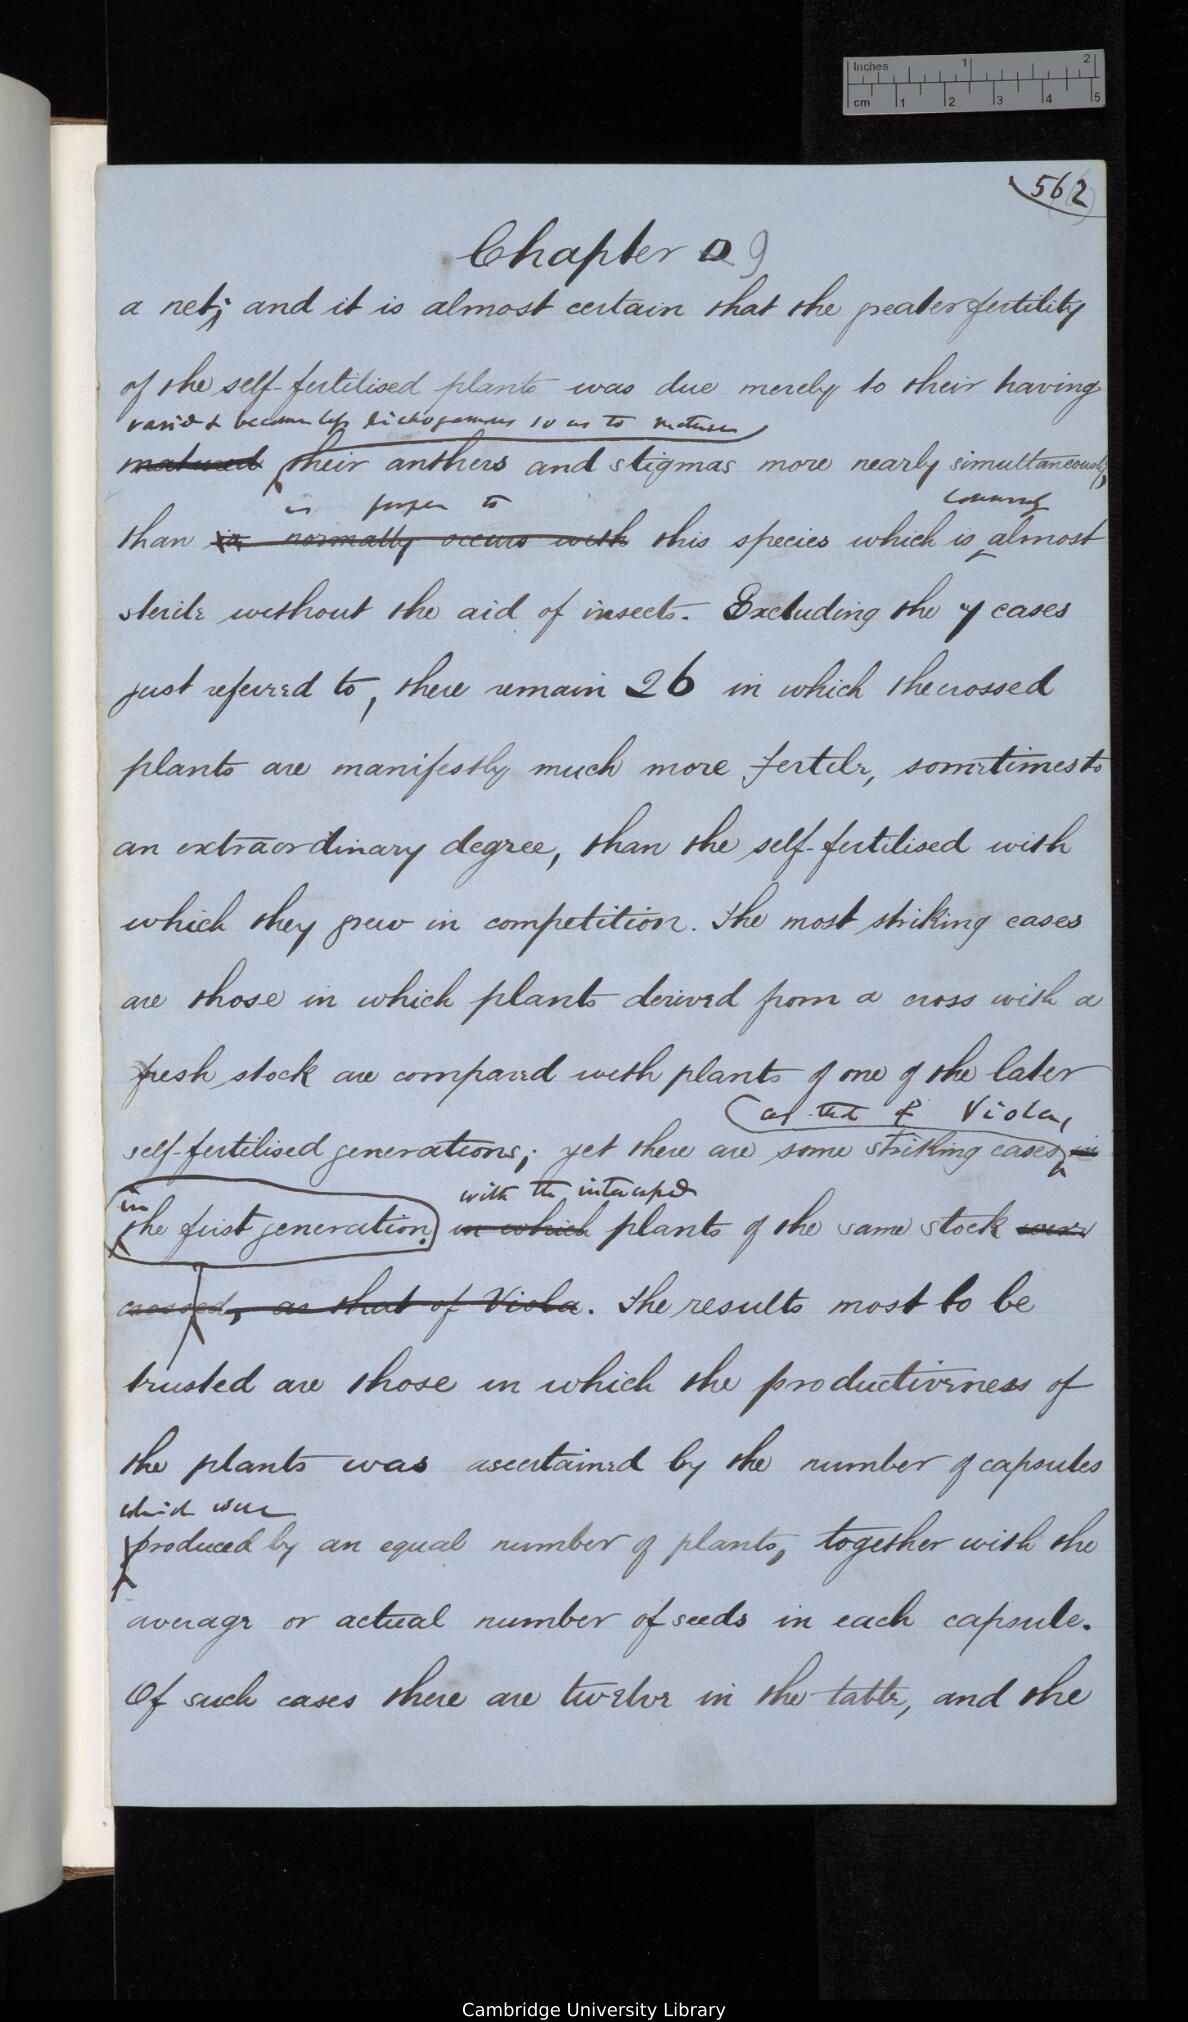 Inches 1 2
cm 1 2 3 4 5
562
Chapter 9
a net; and it is almost certain that the greater fertility
of the self-fertilised plants was due merely to their having
varied & become less dichogamous so as to mature
matured their anthers and stigmas more nearly simultaneously,
is proper to commonly
than is normally occurs with this species which is almost
sterile without the aid of insects. Excluding the 7 cases
just referred to, there remain 26 in which the crossed
plants are manifestly much more fertile, sometimes to
an extraordinary degree, than the self-fertilised with
which they grew in competition. The most striking cases
are those in which plants derived from a cross with a
fresh stock are compared with plants of one of the later
as that of Viola,
self-fertilised generations; yet there are some striking cases, in
in with the intercrossed
the first generation. in which plants of the same stock were
crossed, as that of Viola. The results most to be
trusted are those in which the productiveness of
the plants was ascertained by the number of capsules
which were
produced by an equal number of plants, together with the
average or actual number of seeds in each capsule.
Of such cases there are twelve in the table, and the
Cambridge University Library